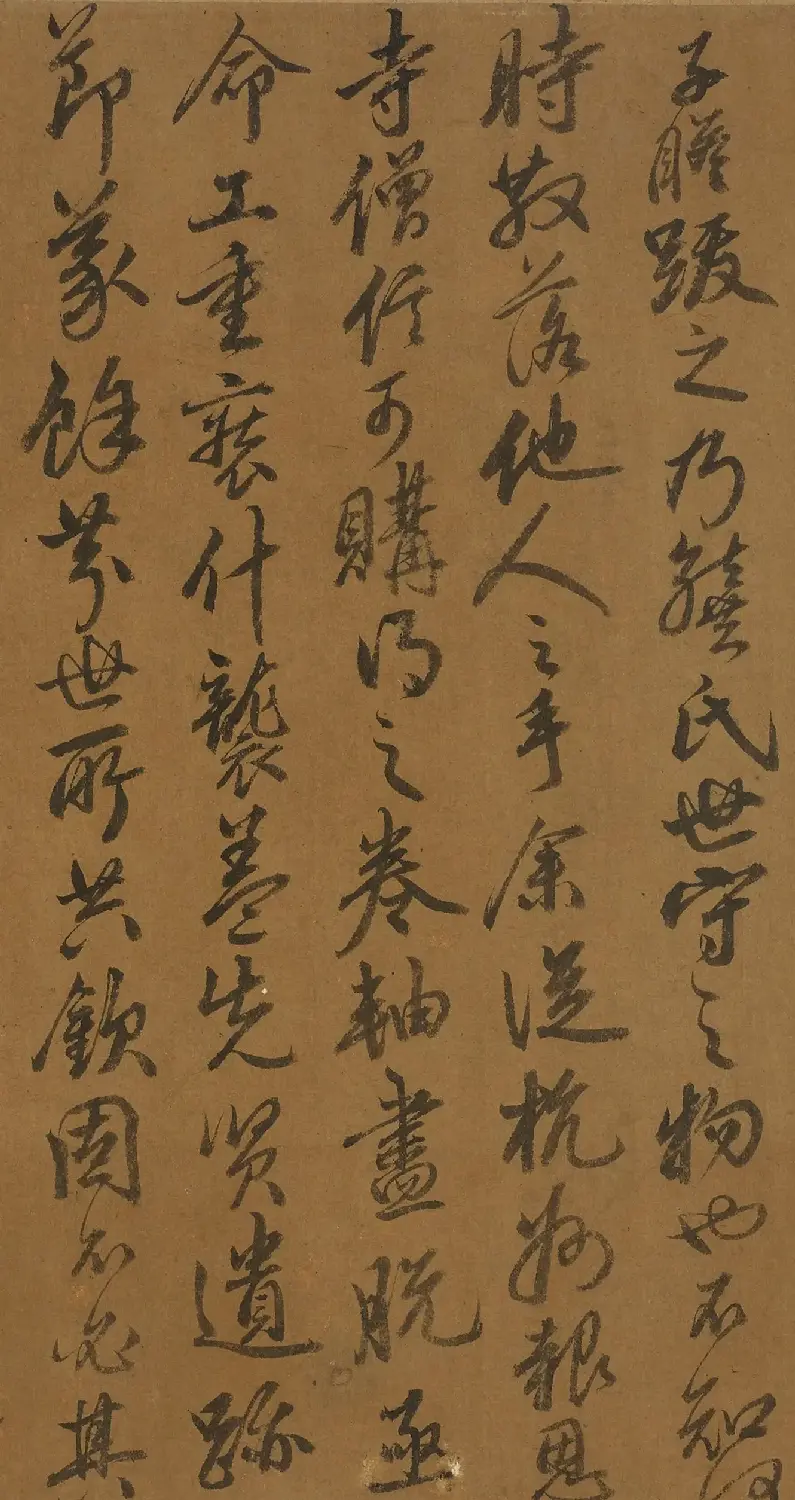 子瞻跋之乃龔氏世守之物也不知何
時散落他人之手余從杭州報恩
寺僧住可購得之卷軸盡脫亟
命工重裝什襲蓋先賢遺跡
節篆餘芬世所共欽固不必其